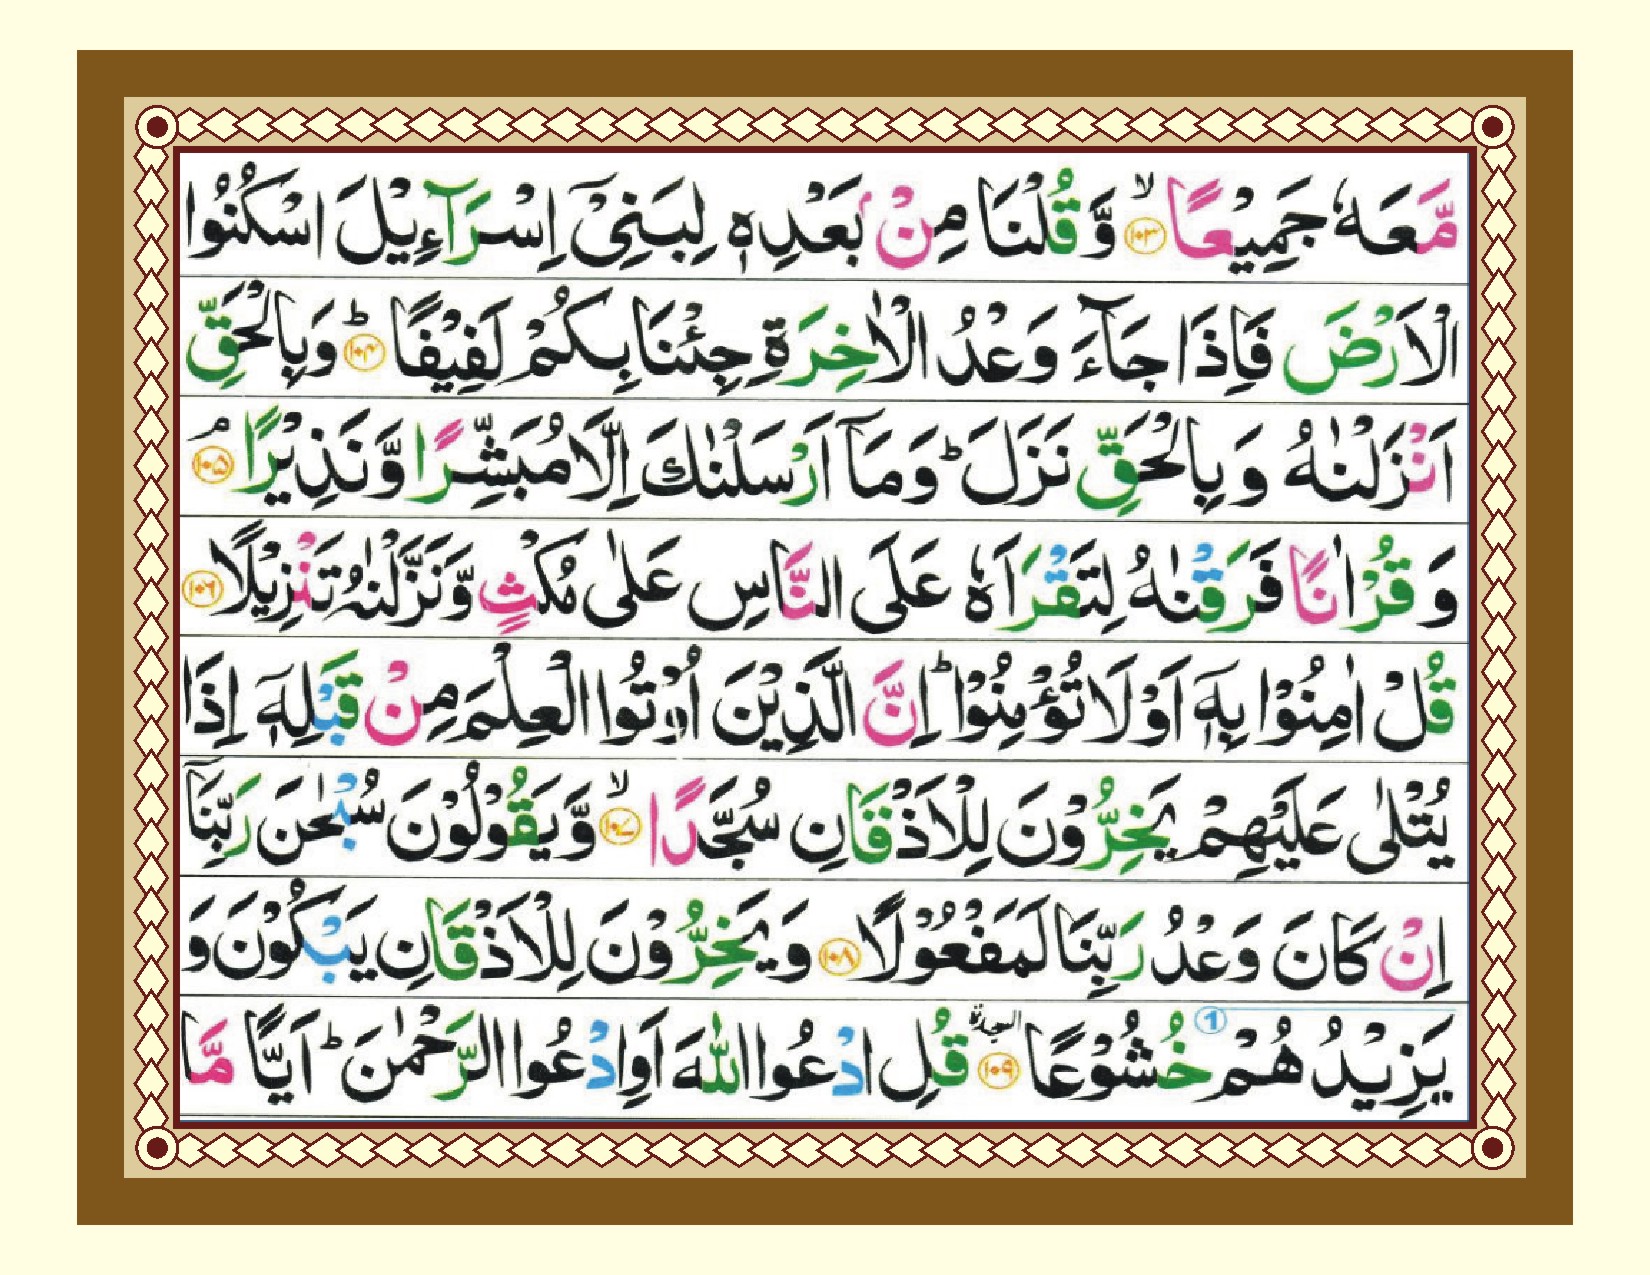 مَّعَهٗ جَمِيْعًا ۙ﴿۱۰۳﴾ وَّقُلْنَا مِنْۢ بَعْدِهٖ لِبَنِىْۤ اِسْرَآءِيْلَ اسْكُنُوا
الْاَرْضَ فَاِذَا جَآءَ وَعْدُ الْاٰخِرَةِ جِئْنَا بِكُمْ لَفِيْفًا ؕ﴿۱۰۴﴾ وَبِالْحَقِّ
اَنْزَلْنٰهُ وَبِالْحَقِّ نَزَلَ ؕ وَمَاۤ اَرْسَلْنٰكَ اِلَّا مُبَشِّرًا وَّنَذِيْرًا ۘ﴿۱۰۵﴾
وَقُرْاٰنًا فَرَقْنٰهُ لِتَقْرَاَهٗ عَلَى النَّاسِ عَلٰى مُكْثٍ وَّنَزَّلْنٰهُ تَنْزِيْلًا ﴿۱۰۶﴾
قُلْ اٰمِنُوْا بِهٖۤ اَوْ لَا تُؤْمِنُوْا ؕ اِنَّ الَّذِيْنَ اُوْتُوا الْعِلْمَ مِنْ قَبْلِهٖۤ اِذَا
يُتْلٰى عَلَيْهِمْ يَخِرُّوْنَ لِلْاَذْقَانِ سُجَّدًا ۙ﴿۱۰۷﴾ وَّيَقُوْلُوْنَ سُبْحٰنَ رَبِّنَاۤ
اِنْ كَانَ وَعْدُ رَبِّنَا لَمَفْعُوْلًا ﴿۱۰۸﴾ وَيَخِرُّوْنَ لِلْاَذْقَانِ يَبْكُوْنَ وَ
يَزِيْدُهُمْ ① خُشُوْعًا ﴿۱۰۹﴾ السجدة قُلِ ادْعُوا اللّٰهَ اَوِ ادْعُوا الرَّحْمٰنَ ؕ اَيًّا مَّا